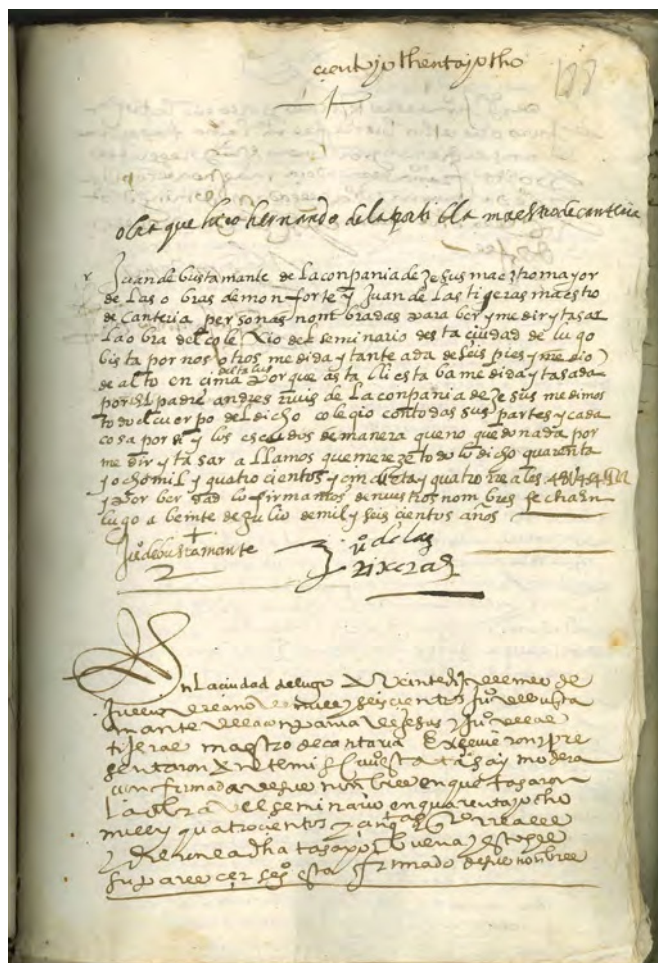 cientoyochentayocho
188
obra que hico hernando de la portilla maestro de canteria
Juan de bustamante de la conpania de Jesus maeztro mayor
de las o bras de mon forte y Juan de las tigeras maestro
de Canteria personas nom bradas para ber y medir y tasar
la o bra del cole xio del seminario desta ciudad de lugo
bista por nos otros medida y tante ada de seis pies y medio
de alto en cima por que asta lli esta ba medida y tasada
por el padre andres ruis de la conpania de Jesus medimos
todo el cuerpo del dicho colegio con todas sus partes y cada
cosa por si y los escudos de manera que no quedo nada por
me dir y ta sar a llamos que mereze todo lo dicho quarenta
y ocho mil y quatro cientos y cinquenta y quatro rreales
y por ber dad lo firmamos de nuestros nom bres fecha en
lugo a beinte de Julio de mil y seis cientos años
Juº de bustamante
Juº de las
tixeras
En la ciudad de lugo a veinte dias del mes de
Jullio de mill y seiscientos Juº de busta
mante de la conpania de Jesus y Juº de las
tijeras maestro de canteria y pre
sentaron ante mi esta tasa y modera
cion firmada de sus nonbres en que tasaron
la obra del seminario en quarenta y ocho
mill y quatrocientos y rreales
y dixeron la dha tasa buena
su parecer segº esta firmado de sus nonbres